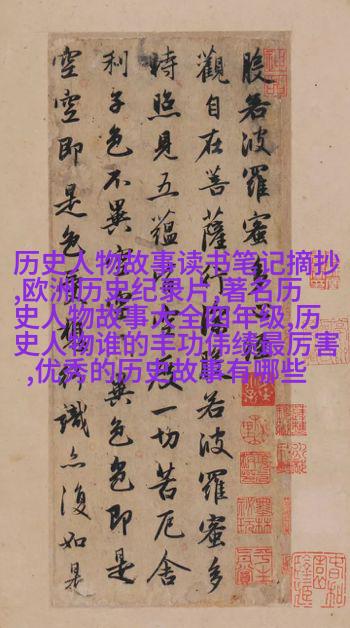 般若波羅蜜多心經
觀自在菩薩行深般若波羅蜜多
時照見五蘊皆空度一切苦厄舍
利子色不異空空不異色色即是
空空即是色受想行識亦復如是
历史人物故事读书笔记摘抄
,欧洲历史纪录片,著名历
史人物故事大全四年级,历
史人物谁的丰功伟绩最厉害
,优秀的历史故事有哪些